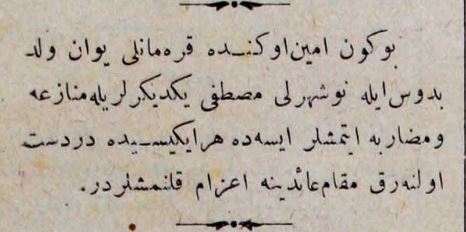 بو كون امين اوكنده قره مانلى يوان ولد
بدوس ايله نوشهرلى مصطفى يكديكرلريله منازعه
ومضاربه ايتمشلر ايسه ده هر ايكيسيده دردست
اولنه رق مقام عائدينه اعزام قلنمشلردر.